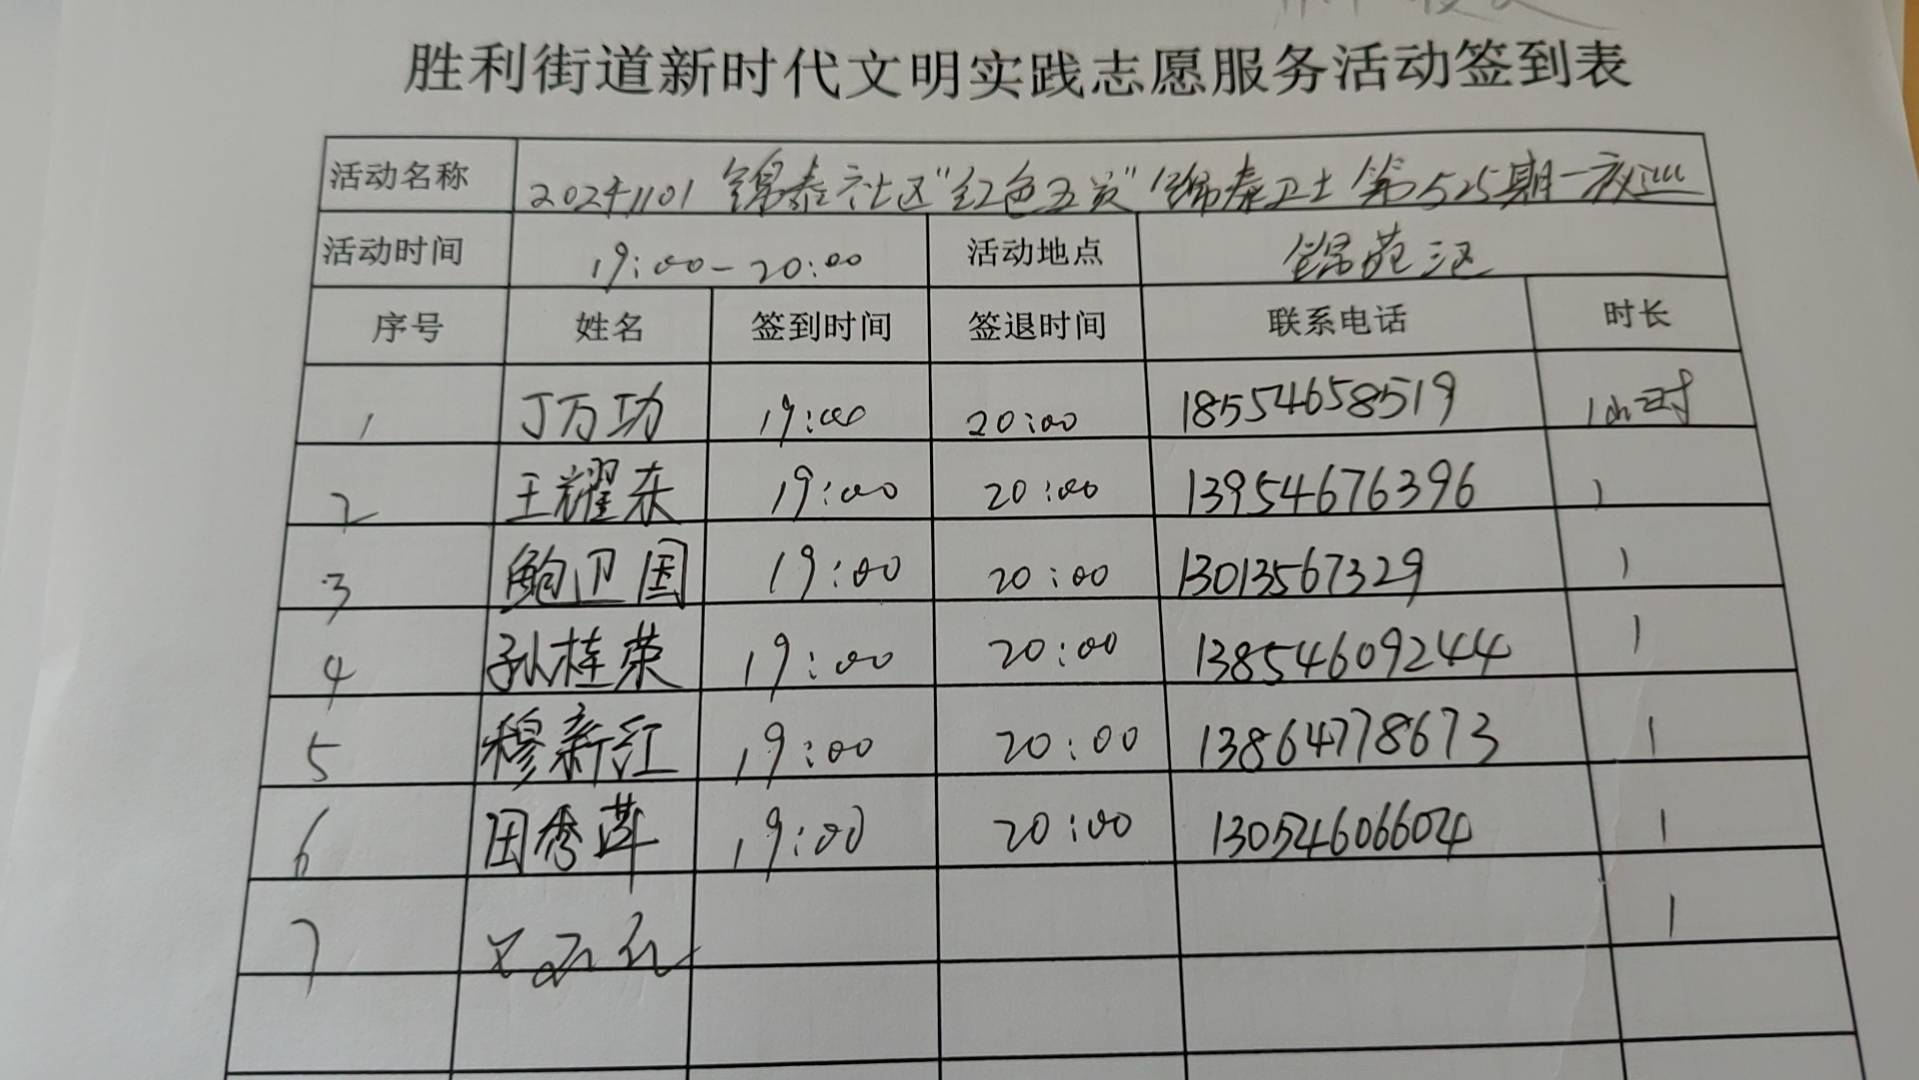 胜利街道新时代文明实践志愿服务活动签到表
活动名称 20241101 锦泰社区"红色五员"锦泰卫士第525期一夜巡
活动时间 19:00-20:00 活动地点 锦苑三区
序号 姓名 签到时间 签退时间 联系电话 时长
1 丁万功 19:00 20:00 18554658519 1小时
2 王耀东 19:00 20:00 13954676396 1
3 鲍卫国 19:00 20:00 13013567329 1
4 孙桂荣 19:00 20:00 13854609244 1
5 穆新红 19:00 20:00 13864778673 1
6 田秀萍 19:00 20:00 13054606604 1
7 1